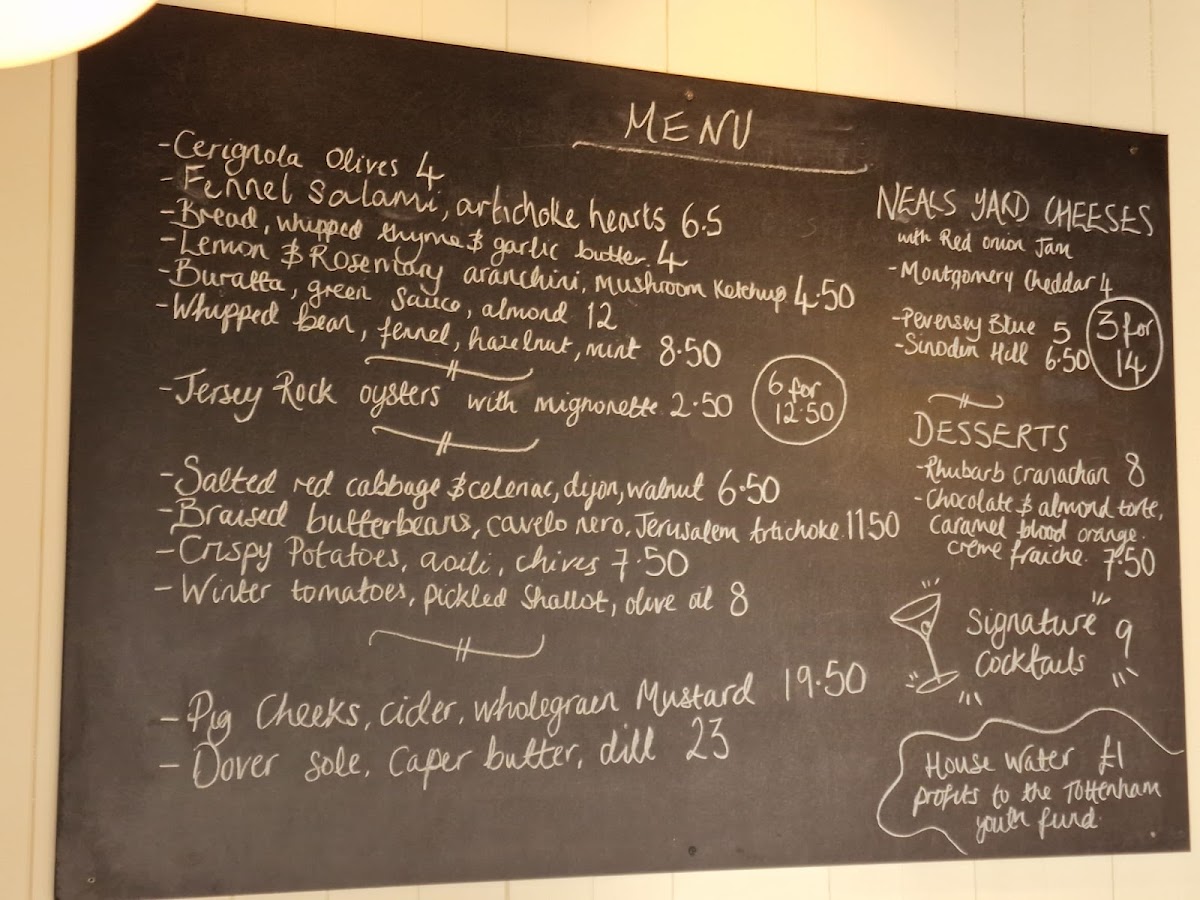 MENU
-Cerignola Olives 4
-Fennel Salami, artichoke hearts 6.5
-Bread, whipped thyme & garlic butter. 4
-Lemon & Rosemary aranchini, Mushroom Ketchup 4.50
-Buratta, green sauce, almond 12
-Whipped bean, fennel, hazelnut, mint 8.50
-Jersey Rock oysters with mignonette 2.50
6 for
12.50
-Salted red cabbage & celeriac, dijon, walnut 6.50
-Braised butterbeans, cavelo nero, Jerusalem Artichoke. 1150
-Crispy Potatoes, aoili, chives 7.50
-Winter tomatoes, pickled shallot, olive oil 8
-Pig Cheeks, cider, wholegrain Mustard 19.50
-Dover sole, caper butter, dill 23
NEALS YARD CHEESES
with Red onion Jam
-Montgomery Cheddar 4
-Pevensey Blue 5
-Sinodun Hill 6.50
3 for
14
DESSERTS
-Rhubarb cranachan 8
-Chocolate & almond torte,
caramel blood orange.
creme fraiche. 7.50
Signature 9
Cocktails
House Water £1
profits to the Tottenham
youth fund